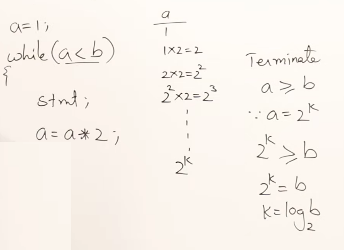 a=1;
while(a<b)
{
stmt;
a=a*2;
a
1
1×2=2
2×2=2²
2²×2=2³
2ᵏ
Terminate
a≥b
∵a=2ᵏ
2ᵏ≥b
2ᵏ=b
k=log₂b